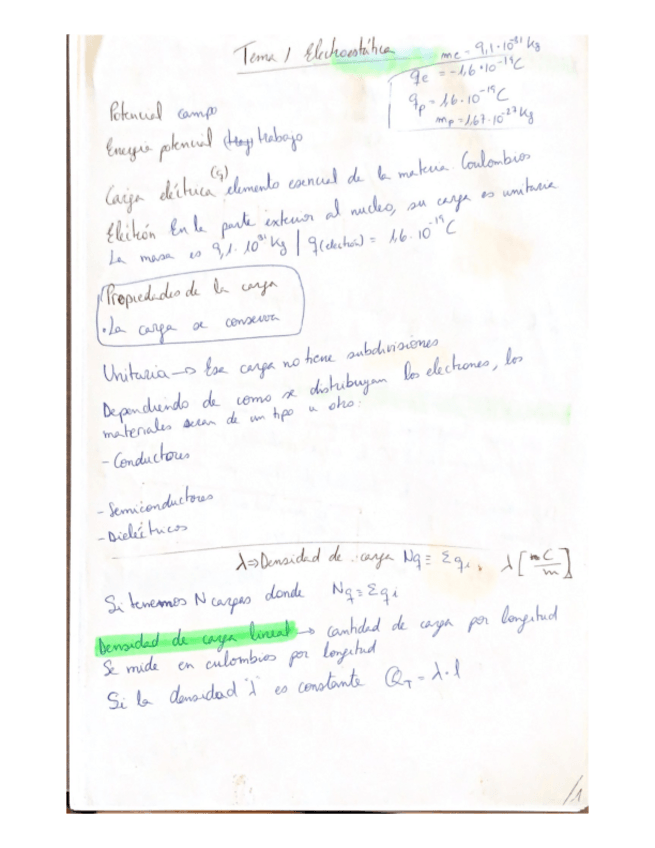 Tema 1 Electroestática
me = 9,1·10⁻³¹ kg
qe = -1,6·10⁻¹⁹C
qp = 1,6·10⁻¹⁹C
mp = 1,67·10⁻²⁷ kg
Potencial campo
Energía potencial (Hay) trabajo
Carga eléctrica (q) elemento esencial de la materia. Coulombios
Electrón En la parte exterior al nucleo, su carga es unitaria
La masa es 9,1·10³¹ kg | q(electrón) = 1,6·10⁻¹⁹ C
Propiedades de la carga
·La carga se conserva
Unitaria → Esa carga no tiene subdivisiones
Dependiendo de como se distribuyan los electrones, los
materiales seran de un tipo u otro:
- Conductores
- Semiconductores
- Dieléctricos
λ⇒Densidad de carga Nq = Σqi, λ[mC/m]
Si tenemos N cargas donde Nq = Σqi
Densidad de carga lineal → cantidad de carga por longitud
Se mide en culombios por longitud
Si la densidad "λ" es constante QT = λ·l
/1